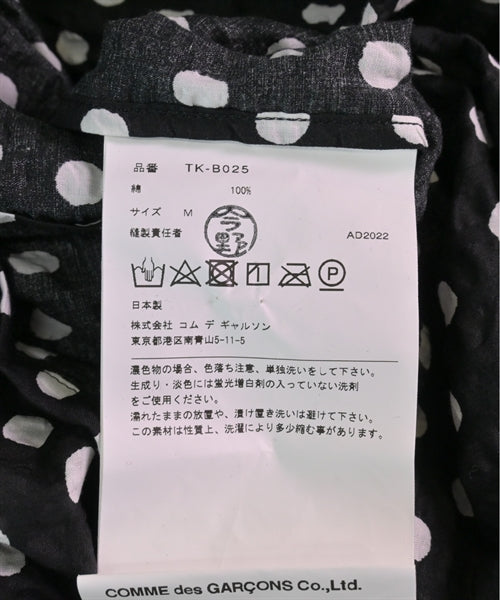 品番 TK-B025
綿 100%
サイズ M
縫製責任者 今野 AD2022
日本製
株式会社 コム デ ギャルソン
東京都港区南青山5-11-5
濃色物の場合、色落ち注意、単独洗いをして下さい。
生成り・淡色には蛍光増白剤の入っていない洗剤
をご使用ください。
濡れたままの放置や、漬け置き洗いは避けて下さい。
この素材は性質上、洗濯により多少縮む事があります。
COMME des GARÇONS Co.,Ltd.